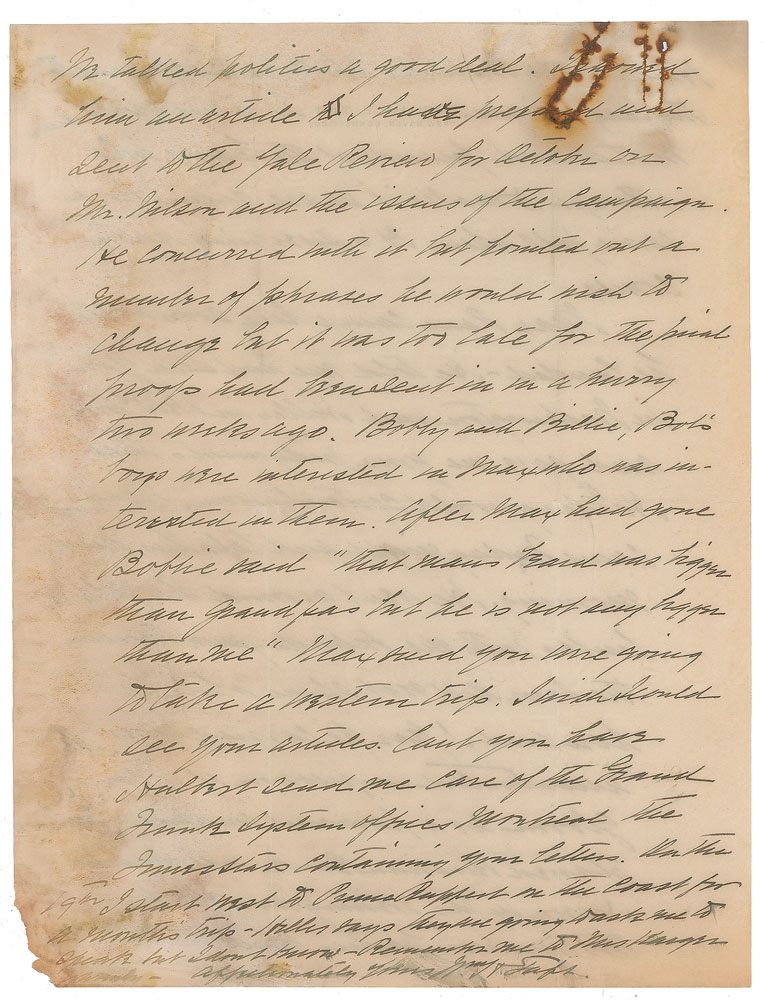 We talked politics a good deal. I showed
him an article I have prepared and
sent to the Yale Review for October on
Mr. Wilson and the issues of the campaign.
He concurred with it but pointed out a
number of phrases he would wish to
change but it was too late for the final
proofs had been sent in in a hurry
two weeks ago. Bobby and Billie, Bob's
boys were interested in Max who was in-
terested in them. After Max had gone
Bobbie said "that man's beard was bigger
than Grandpa's but he is not any bigger
than me" Max said you were going
to take a western trip. I wish I could
see your articles. Cant you have
Hulbert send me care of the Grand
Trunk System offices Montreal the
Times Stars containing your letters. On the
19th I start west to Prince Rupert on the coast for
a months trip - Hilles says they are going to ask me to
speak but I dont know - Remember me to Mrs Karger
Affectionately yours Wm H Taft.